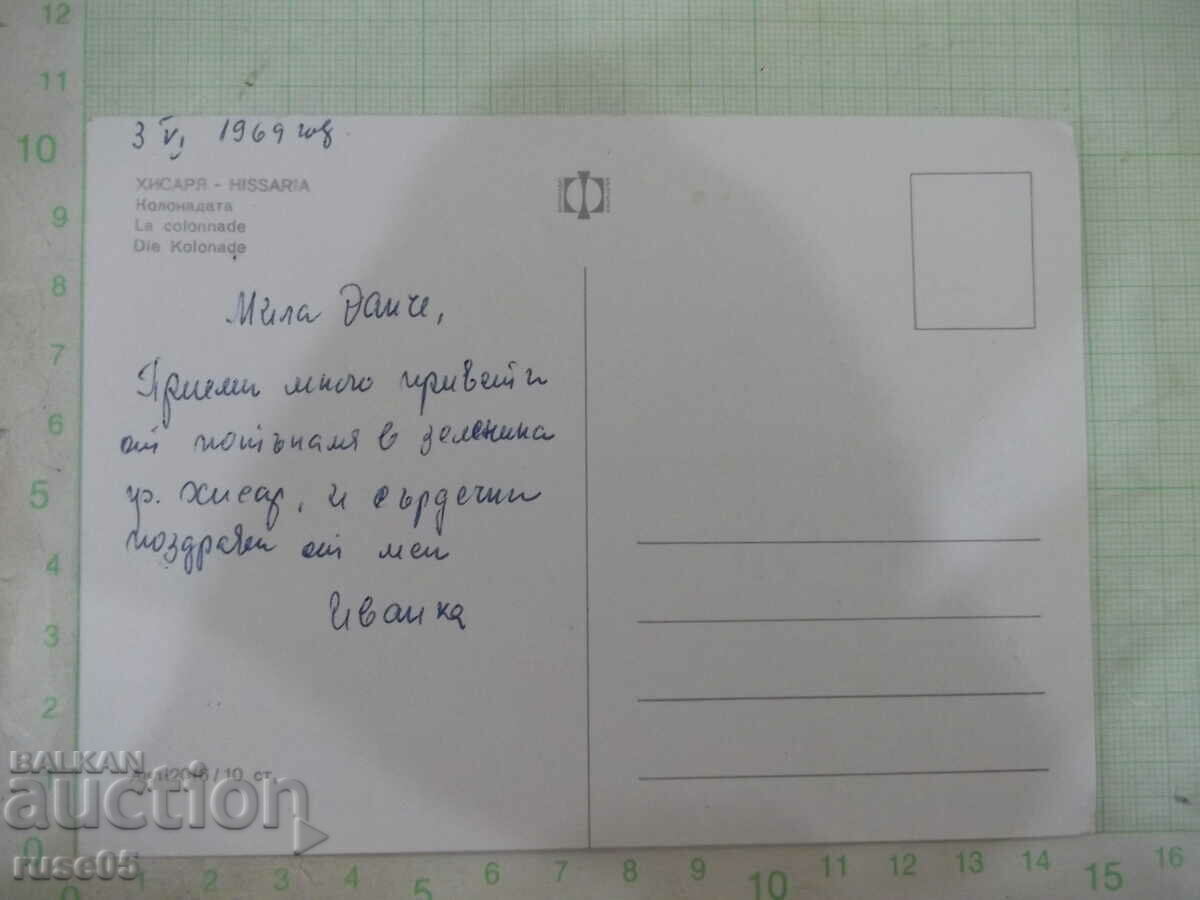 3 VI 1969 год
ХИСАРЯ - HISSARIA
Колонадата
La colonnade
Die Kolonade
Мила Данче,
Приеми много привети
от потъналия в зеленина
гр. Хисар, и сърдечни
поздрави от мен
Иванка
/ 10 ст.
BALKAN
auction
ruse05
12
11
10
9
8
7
6
5
4
3
2
1
0
0 1 2 3 4 5 6 7 8 9 10 11 12 13 14 15 16